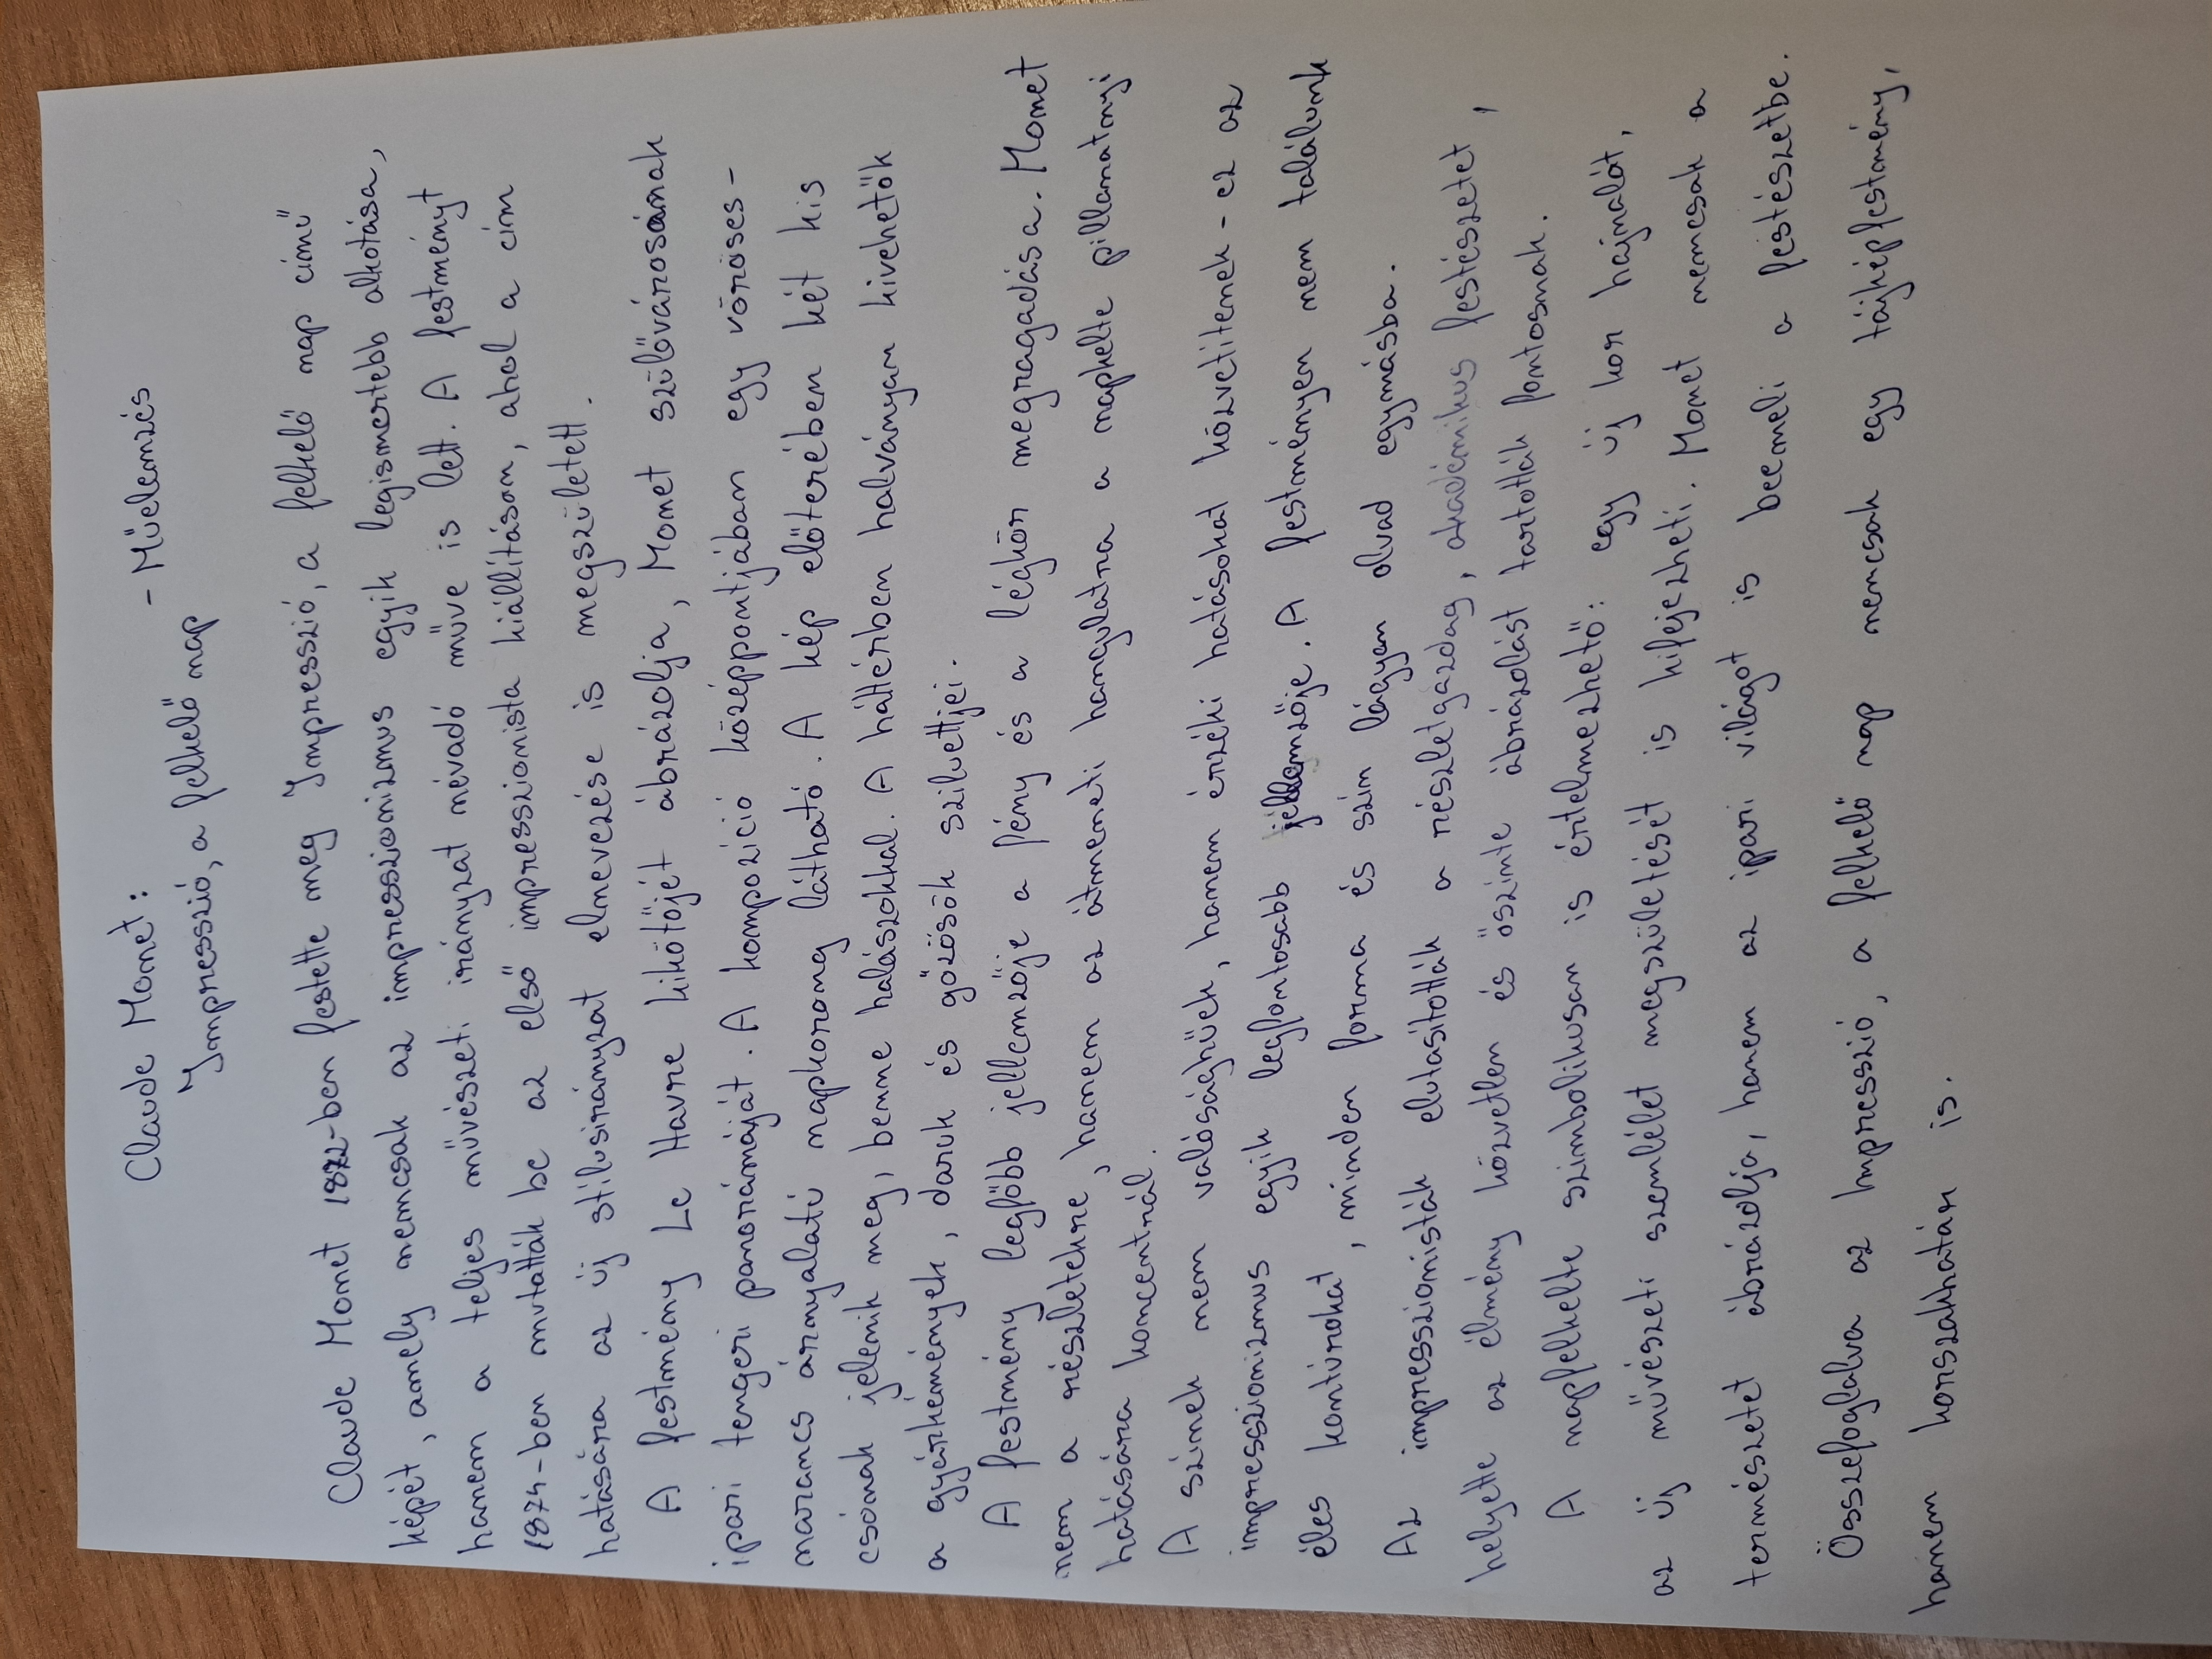 Claude Monet:
Impresszió, a felkelő nap - Műelemzés
Claude Monet 1872-ben festette meg Impresszió, a felkelő nap című
képét, amely nemcsak az impresszionizmus egyik legismertebb alkotása,
hanem a teljes művészeti irányzat névadó műve is lett. A festményt
1874-ben mutatták be az első impresszionista kiállításon, ahol a cím
hatására az új stílusirányzat elnevezése is megszületett.
A festmény Le Havre kikötőjét ábrázolja, Monet szülővárosának
ipari tengeri panorámáját. A kompozíció középpontjában egy vöröses-
narancs árnyalatú napkorong látható. A kép előterében két kis
csónak jelenik meg, benne halászokkal. A háttérben halványan kivehetők
a gyárkémények, daruk és gőzösök sziluettjei.
A festmény legfőbb jellemzője a fény és a légkör megragadása. Monet
nem a részletekre, hanem az átmeneti hangulatra a napkelte pillanatnyi
hatására koncentrál.
A színek nem valósághűek, hanem érzéki hatásokat közvetítenek - ez az
impresszionizmus egyik legfontosabb jellemzője. A festményen nem találunk
éles kontúrokat, minden forma és szín lágyan olvad egymásba.
Az impresszionisták elutasították a részletgazdag, akadémikus festészetet,
helyette az élmény közvetlen és őszinte ábrázolást tartották fontosnak.
A napfelkelte szimbolikusan is értelmezhető: egy új kor hajnalát,
az új művészeti szemlélet megszületését is kifejezheti. Monet nemcsak a
természetet ábrázolja, hanem az ipari világot is beemeli a festészetbe.
Összefoglalva az Impresszió, a felkelő nap nemcsak egy tájképfestmény,
hanem korszakhatár is.